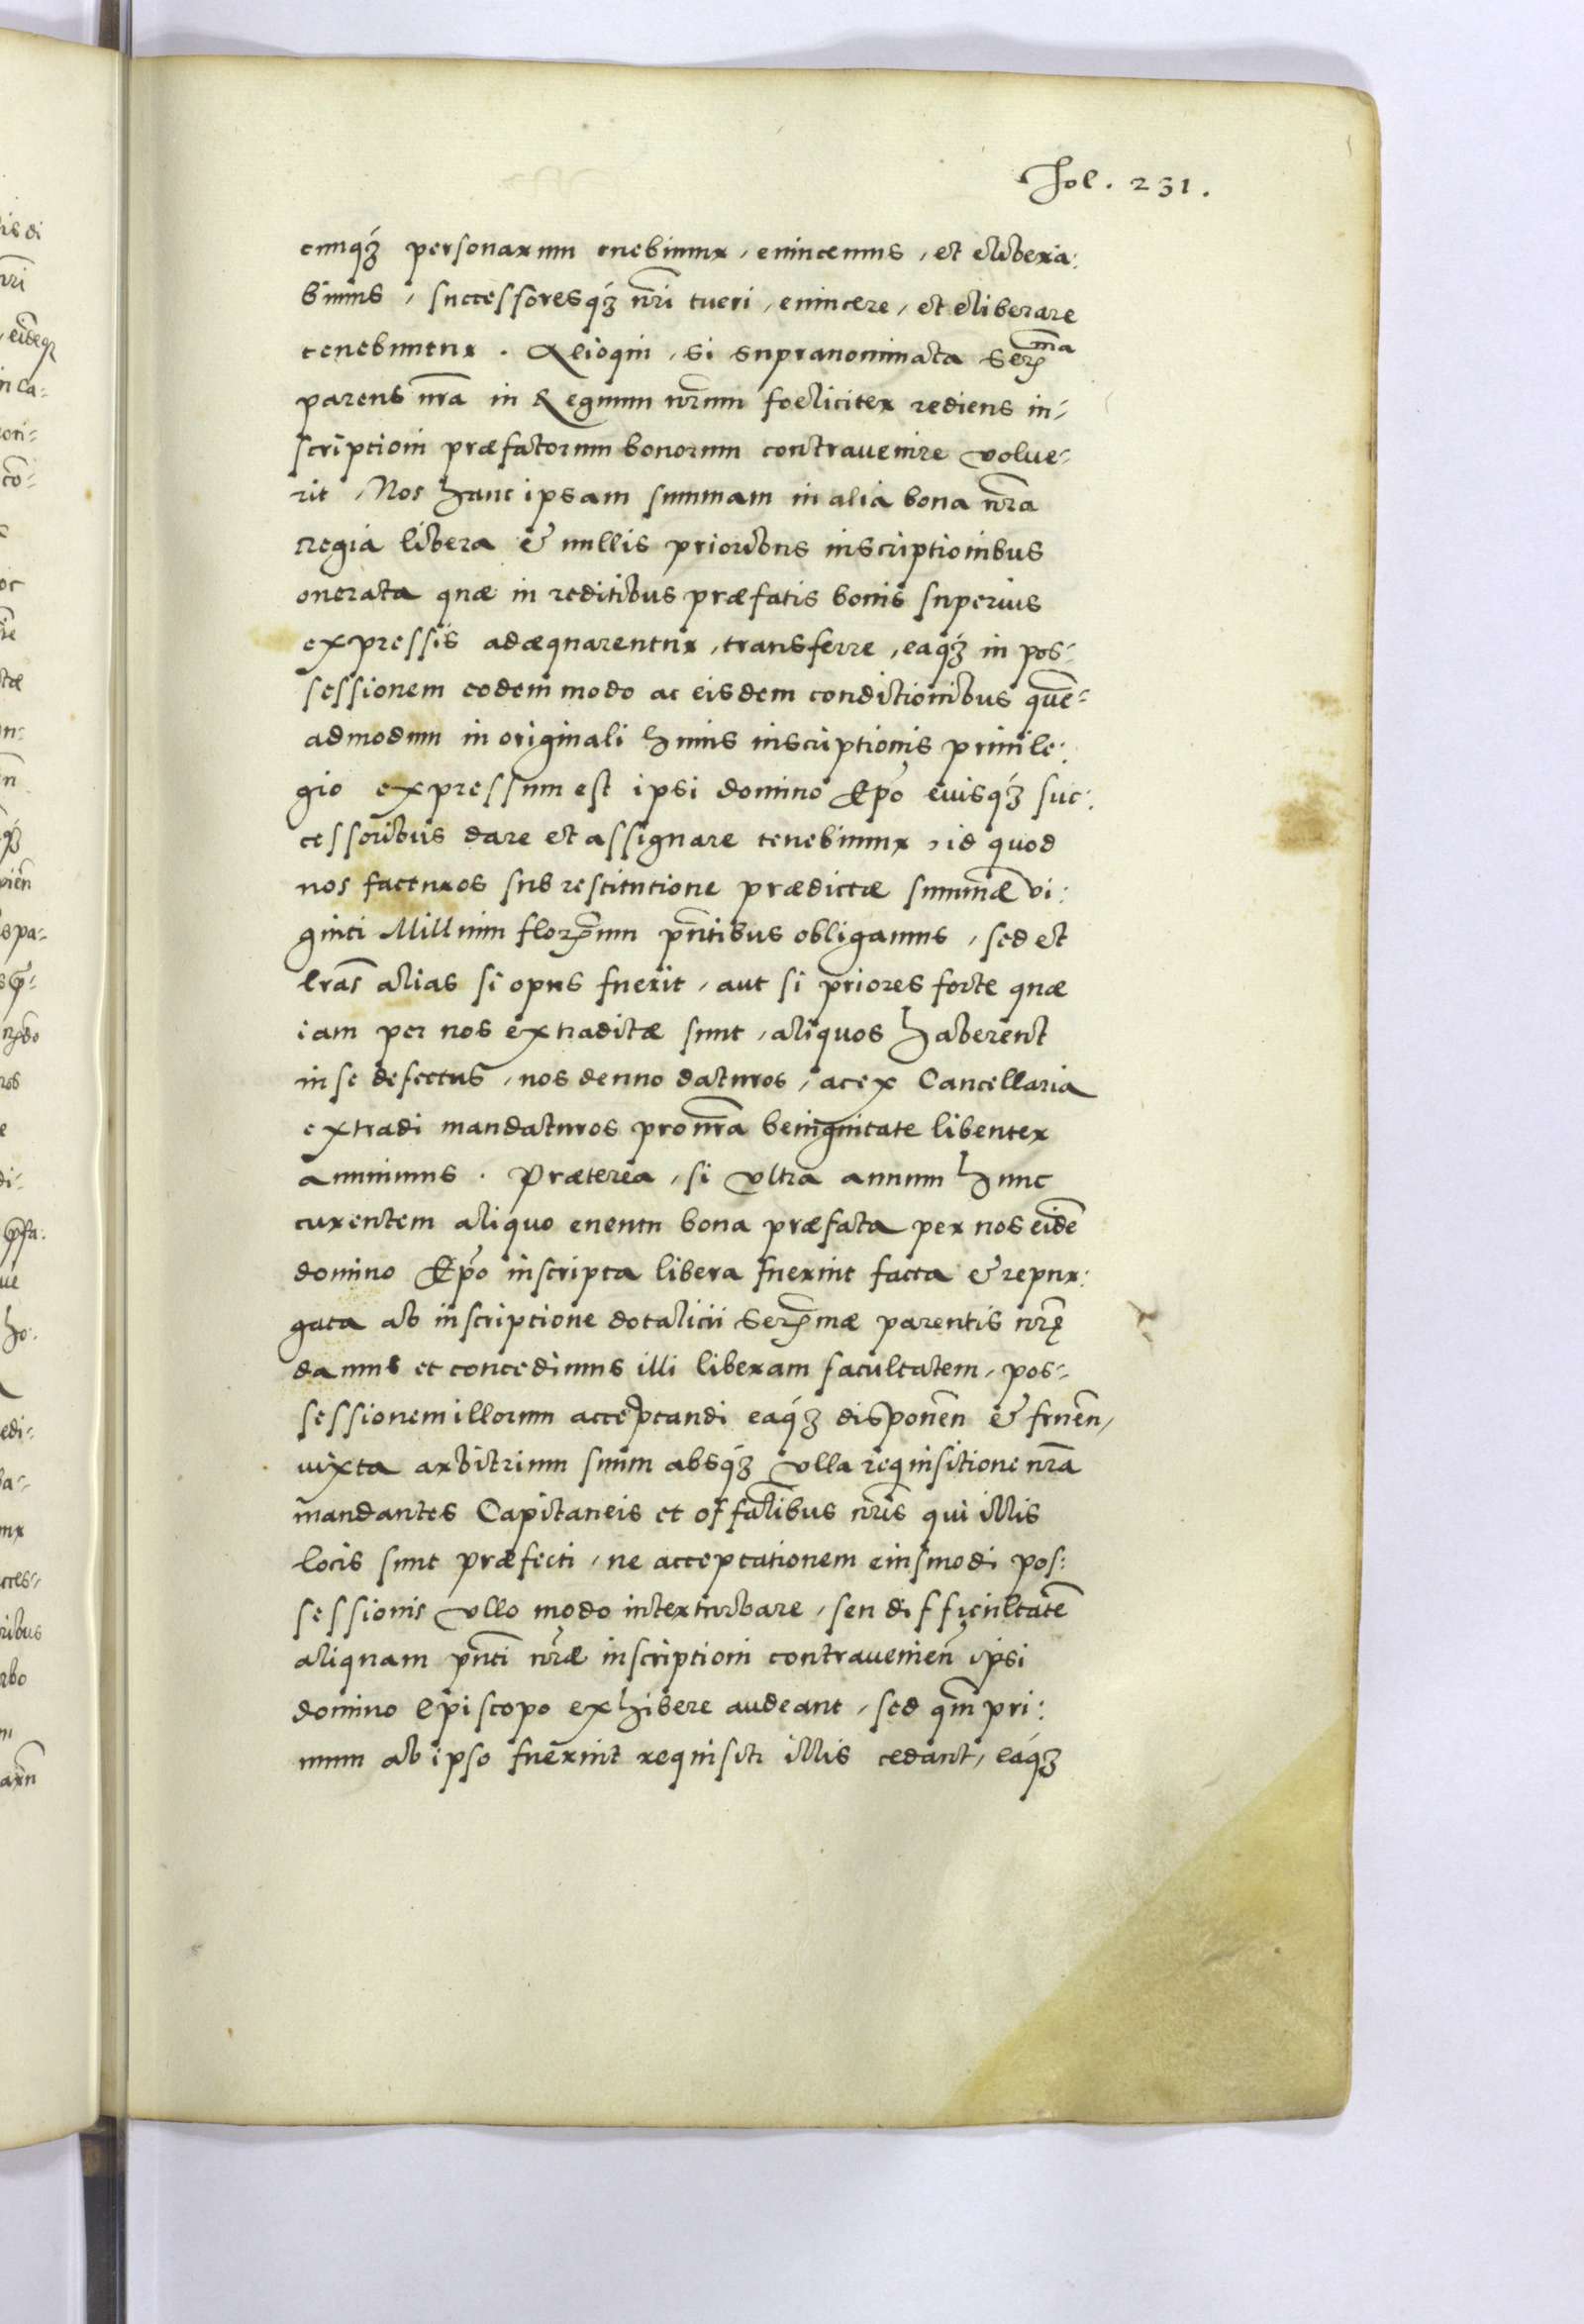 Fol. 231.
cunq́ꝫ personarum tuebimur, euincemus, et elibera:
bimus, successoresq́ꝫ nr̃i tueri, euincere, et eliberare
tenebuntur. Alioqui, si supranominata Ser^ma
parens nr̃a in Regnum nr̃um foeliciter rediens in-
scriptioni præfatorum bonorum contrauenire volue-
rit, Nos hanc ipsam summam in alia bona nr̃a
regia libera & nullis prioribus inscriptionibus
onerata quæ in reditibus præfatis bonis superius
expressis adæquarentur, transferre, eaq́ꝫ in pos-
sessionem eodem modo ac eisdem conditionibus quẽ-
admodum in originali huius inscriptionis priuile:
gio expressum est ipsi domino Ep̃o eiusq́ꝫ suc:
cessoribus dare et assignare tenebimur, id quod
nos facturos sub restitutione prædictæ summæ vi:
ginti Millium flor̃enum pñtibus obligamus, sed et
lr̃as alias si opus fuerit, aut si priores forte quæ
iam per nos extraditæ sunt, aliquos haberent
in se defectus, nos denuo daturos, ac ex Cancellaria
extradi mandaturos pro nr̃a benignitate libenter
annuimus. Præterea, si vltra annum hunc
curentem aliquo euentu bona præfata per nos eidẽ
domino Ep̃o inscripta libera fuerint facta & repur:
gata ab inscriptione dotalicii Ser̃mæ parentis nr̃ę
damus et concedimus illi liberam facultatem, pos-
sessionem illorum acceptandi eaq́ꝫ disponeñ & frueñ,
iuxta arbitrium suum absq́ꝫ vlla requisitione nr̃a
mandantes Capitaneis et offãlibus nr̃is qui illis
locis sunt præfecti, ne acceptationem eiusmodi pos:
sessionis vllo modo interturbare, seu difficultatẽ
aliquam pñti nr̃æ inscriptioni contraueniẽn ipsi
domino Episcopo exhibere audeant, sed qm̃ pri:
mum ab ipso fuerint requisiti illis cedant, eaq́ꝫ